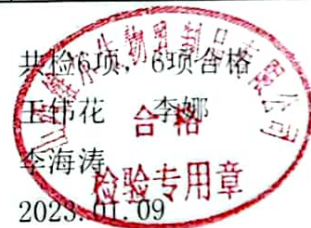 共检6项，6项合格
王伟花 李娜
李海涛
2023.01.09
合格
检验专用章